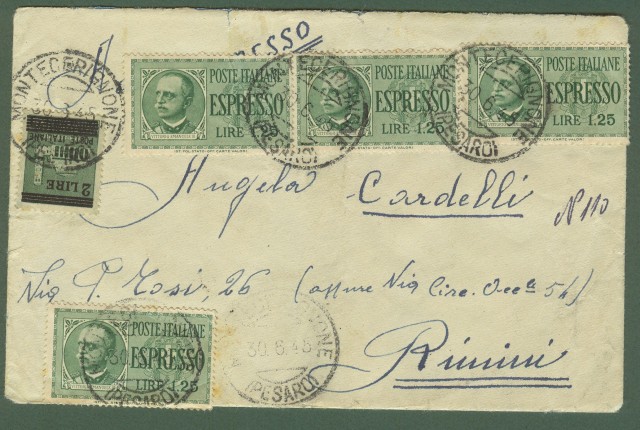 ESPRESSO
POSTE ITALIANE
ESPRESSO
LIRE 1.25
POSTE ITALIANE
ESPRESSO
LIRE 1.25
POSTE ITALIANE
ESPRESSO
LIRE 1.25
MONTECERIGNONE
30.6.45
(PESARO)
2 LIRE
POSTE ITALIANE
Angela Cardelli
N 110
Via T. Tosi, 26 (oppure Via Circ. Occ. 54)
Rimini
POSTE ITALIANE
ESPRESSO
LIRE 1.25
30.6.45
(PESARO)